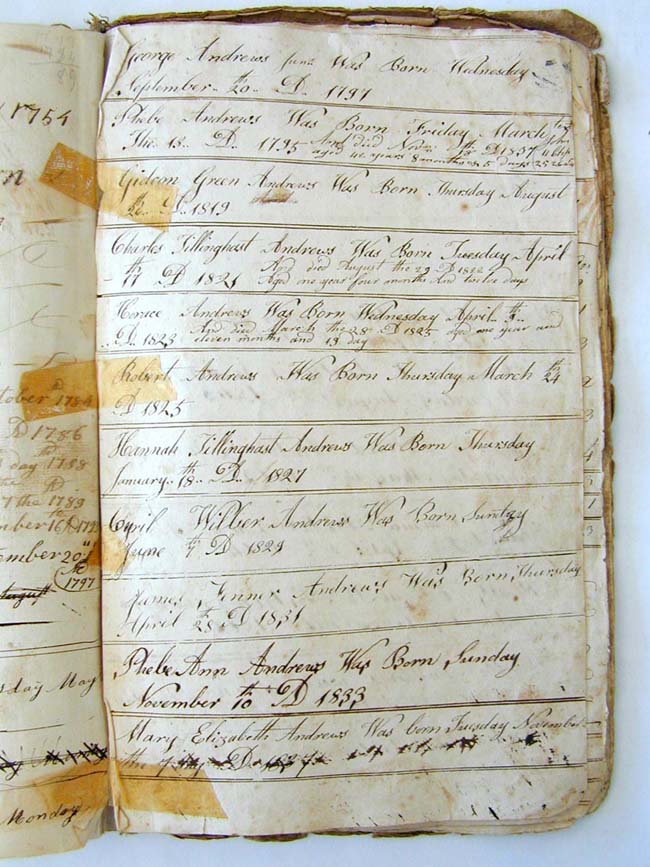 1754
George Andrews Junr Was Born Wednesday
September 20 D 1797
Phebe Andrews Was Born Friday March
The 13 D 1795 And died Novr D 1837
aged 42 years 8 months & 5 days
Gideon Green Andrews Was Born Thursday August
26 D 1819
Charles Tillinghast Andrews Was Born Tuesday April
17 th D 1821 And died August the 29 D 1822
Aged one year four months And twelve days
Horace Andrews Was Born Wednesday April
D 1823 And died March the 28 D 1825 aged one year and
eleven months and 19 day
Robert Andrews Was Born Thursday March 24 th
D 1825
Hannah Tillinghast Andrews Was Born Thursday
January 18 th D 1827
Cyril Wilber Andrews Was Born Sunday
June 7 th D 1829
James Fenner Andrews Was Born Thursday
April 28 D 1831
Phebe Ann Andrews Was Born Sunday
November 10 th D 1833
Mary Elizabeth Andrews Was born Tuesday November
the 7 D 1837
1784
D 1786
day 1788
the 1789
mber 16
ember 20
1797
August
sday May
Monday